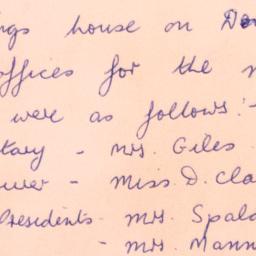 ngs house on De
offices for the n
were as follows:-
tary - Mrs. Giles
urer - Miss D. Cla
Presidents - Mrs. Spald
- Mrs. Mann